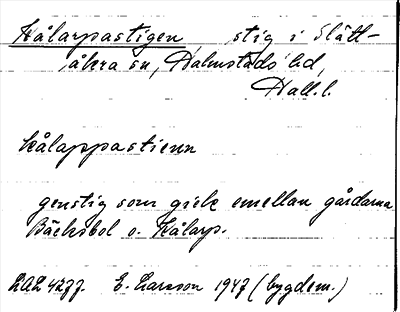 Kålarpastigen, stig i Slätt-
åkra sn, Halmstads hd,
Hall.l.
kålappastienn
genstig som gick emellan gårdarna
Bäcksbol o. Kålarp.
LAL 4277. E. Larsson 1947 (bygdem.)